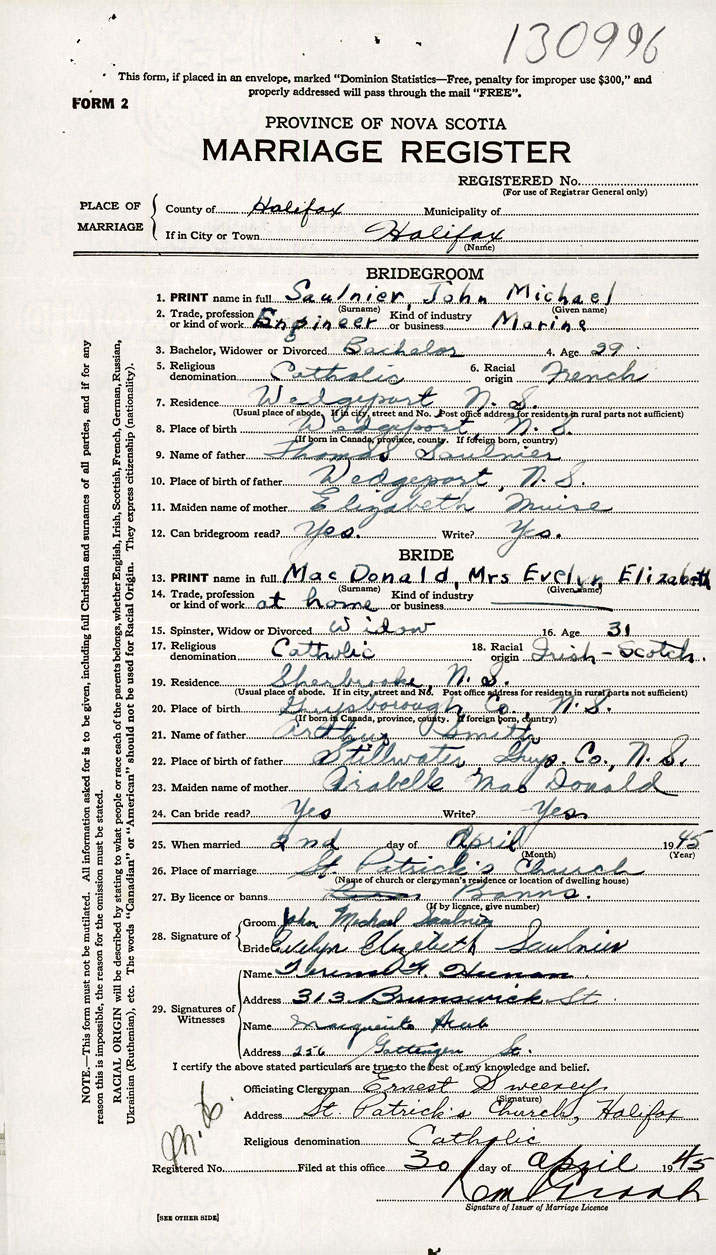 130996
This form, if placed in an envelope, marked "Dominion Statistics—Free, penalty for improper use $300," and
properly addressed will pass through the mail "FREE".
FORM 2
PROVINCE OF NOVA SCOTIA
MARRIAGE REGISTER
REGISTERED No.
(For use of Registrar General only)
PLACE OF MARRIAGE
County of Halifax Municipality of
If in City or Town Halifax
(Name)
BRIDEGROOM
1. PRINT name in full Saulnier, John Michael
(Surname) (Given name)
2. Trade, profession or kind of work Engineer Kind of industry or business Marine
3. Bachelor, Widower or Divorced Bachelor 4. Age 29
5. Religious denomination Catholic 6. Racial origin French
7. Residence Wedgeport N. S.
(Usual place of abode. If in city, street and No. Post office address for residents in rural parts not sufficient)
8. Place of birth Wedgeport, N. S.
(If born in Canada, province, county. If foreign born, country)
9. Name of father Thomas Saulnier
10. Place of birth of father Wedgeport, N. S.
11. Maiden name of mother Elizabeth Muise
12. Can bridegroom read? Yes. Write? Yes.
BRIDE
13. PRINT name in full Mac Donald, Mrs Evelyn Elizabeth
(Surname) (Given name)
14. Trade, profession or kind of work at home Kind of industry or business
15. Spinster, Widow or Divorced Widow 16. Age 31
17. Religious denomination Catholic 18. Racial origin Irish-Scotch.
19. Residence Sherbrooke, N. S.
(Usual place of abode. If in city, street and No. Post office address for residents in rural parts not sufficient)
20. Place of birth Guysborough Co., N. S.
(If born in Canada, province, county. If foreign born, country)
21. Name of father Arthur Smith
22. Place of birth of father Stillwater, Guys. Co., N. S.
23. Maiden name of mother Arabelle Mac Donald
24. Can bride read? Yes Write? Yes
25. When married 2nd day of April 1945
(Month) (Year)
26. Place of marriage St. Patrick's Church
(Name of church or clergyman's residence or location of dwelling house)
27. By licence or banns Banns.
(If by licence, give number)
28. Signature of
Groom John Michael Saulnier
Bride Evelyn Elizabeth Saulnier
29. Signatures of Witnesses
Name
Address 313 Brunswick St.
Name Marguerite
Address 256 Gottingen St.
I certify the above stated particulars are true to the best of my knowledge and belief.
Officiating Clergyman Ernest Sweeney
(Signature)
Address St. Patrick's Church, Halifax
Religious denomination Catholic
Registered No. Filed at this office 30 day of April 1945
Signature of Issuer of Marriage Licence
[SEE OTHER SIDE]
NOTE.—This form must not be mutilated. All information asked for is to be given, including full Christian and surnames of all parties, and if for any
reason this is impossible, the reason for the omission must be stated.
RACIAL ORIGIN will be described by stating to what people or race each of the parents belongs, whether English, Irish, Scottish, French, German, Russian,
Ukrainian (Ruthenian), etc. The words "Canadian" or "American" should not be used for Racial Origin. They express citizenship (nationality).